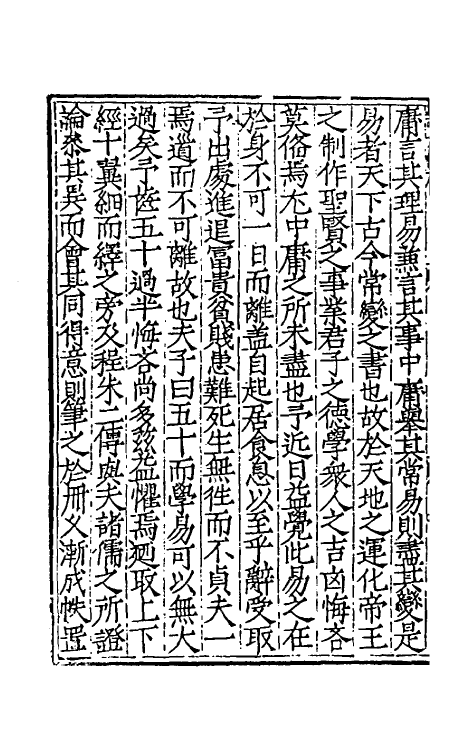 庸言其理易兼言其事中庸舉其常易則盡其變是
易者天下古今常變之書也故於天地之運化帝王
之制作聖賢之事業君子之德學衆人之吉凶悔吝
莫偹焉尢中庸之所未盡也予近日益覺此易之在
於身不可一日而離盖自起居食息以至乎辭受取
予出處進退富貴貧賤患難死生無徃而不貞夫一
焉道而不可離故也夫子曰五十而學易可以無大
過矣予齒五十過半悔吝尚多茲益懼焉廼取上下
經十翼細而繹之旁及程朱二傳與夫諸儒之所證
論叅其異而會其同得意則筆之於冊乂漸成帙